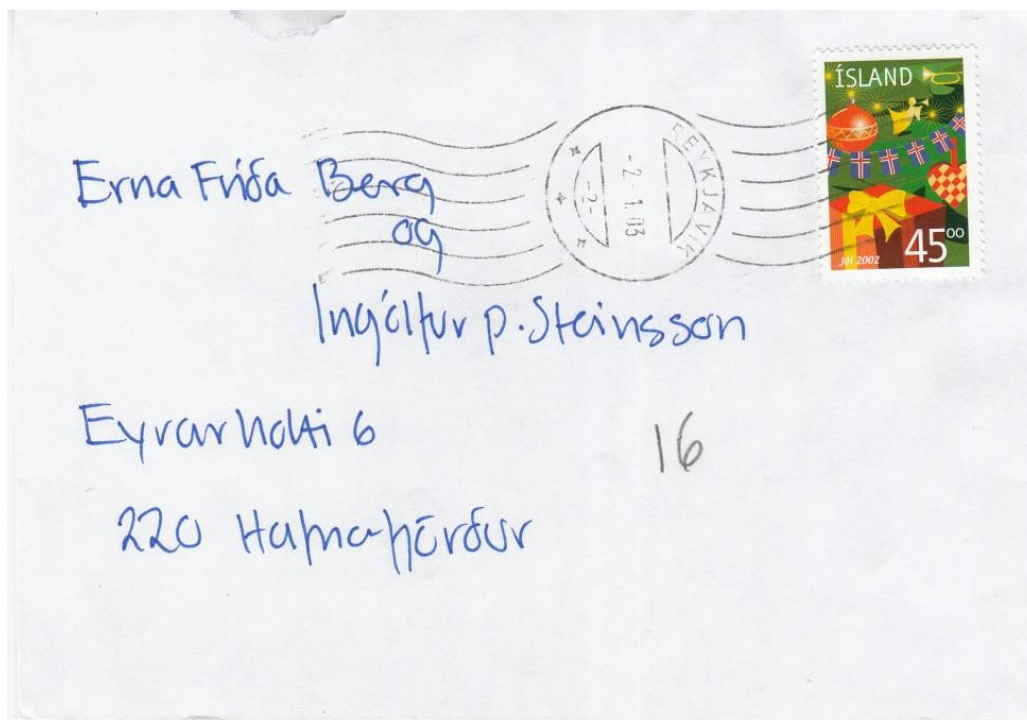 ÍSLAND
45⁰⁰
Jól 2002
REYKJAVÍK
-2.-1.03
-2-
Erna Fríða Berg
og
Ingólfur p. Steinsson
Eyrarholti 6
16
220 Hafnafjörður